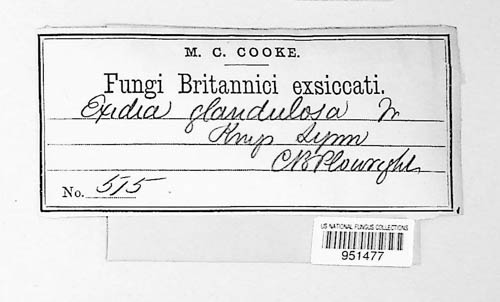 M. C. COOKE.
Fungi Britannici exsiccati.
Exidia glandulosa Fr
King's Lynn
C B Plowright
No. 515
US NATIONAL FUNGUS COLLECTIONS
951477